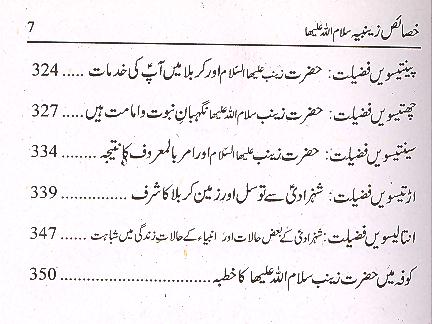 خصائص زینبیہ سلام اللہ علیھا 7
پینتیسویں فضیلت: حضرت زینب علیھا السّلام اور کربلا میں آپؑ کی خدمات ..... 324
چھتیسویں فضیلت: حضرت زینب سلام اللہ علیھا نگہبانِ نبوت و امامت ہیں ..... 327
سینتیسویں فضیلت: حضرت زینب علیھا السّلام اور امر بالمعروف کا نتیجہ ........ 334
اڑتیسویں فضیلت: شہزادیؑ سے توسل اور زمین کربلا کا شرف .............. 339
انتالیسویں فضیلت: شہزادیؑ کے بعض حالات اور انبیاء کے حالاتِ زندگی میں شباہت ...... 347
کوفہ میں حضرت زینب سلام اللہ علیھا کا خطبہ ........................ 350